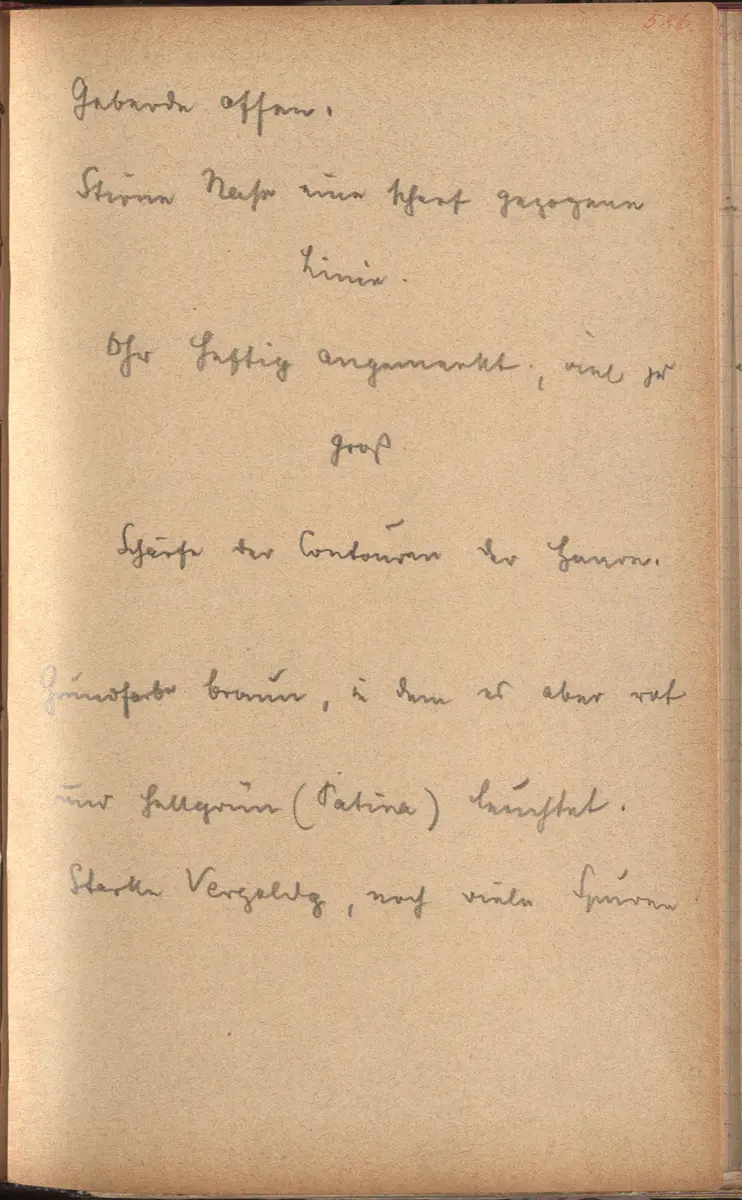 586
Geberde offen.
Stirne Nase eine scharf gezogene
Linie.
Ohr heftig angemerkt, viel zu
groß
Schärfe der Contouren der Haare.
Grundfarbe braun, in dem es aber rot
und hellgrün (Patina) leuchtet.
Starke Vergoldg, noch viele Spuren